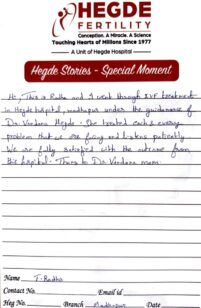 HEGDE
FERTILITY
Conception. A Miracle. A Science
Touching Hearts of Millions Since 1977
A Unit of Hegde Hospital
Hegde Stories - Special Moment
Hi, This is Radha and I went through IVF treatment
in Hegde hospital, madhapur under the guidance of
Dr. Vandana Hegde. She treated each & every
problem that we are facing and listens patiently
We are fully satisfied with the outcome from
this hospital. Thanks to Dr. Vandana mam.
Name T. Radha
Contact No. Email id
Heg No. Branch Madhapur Date